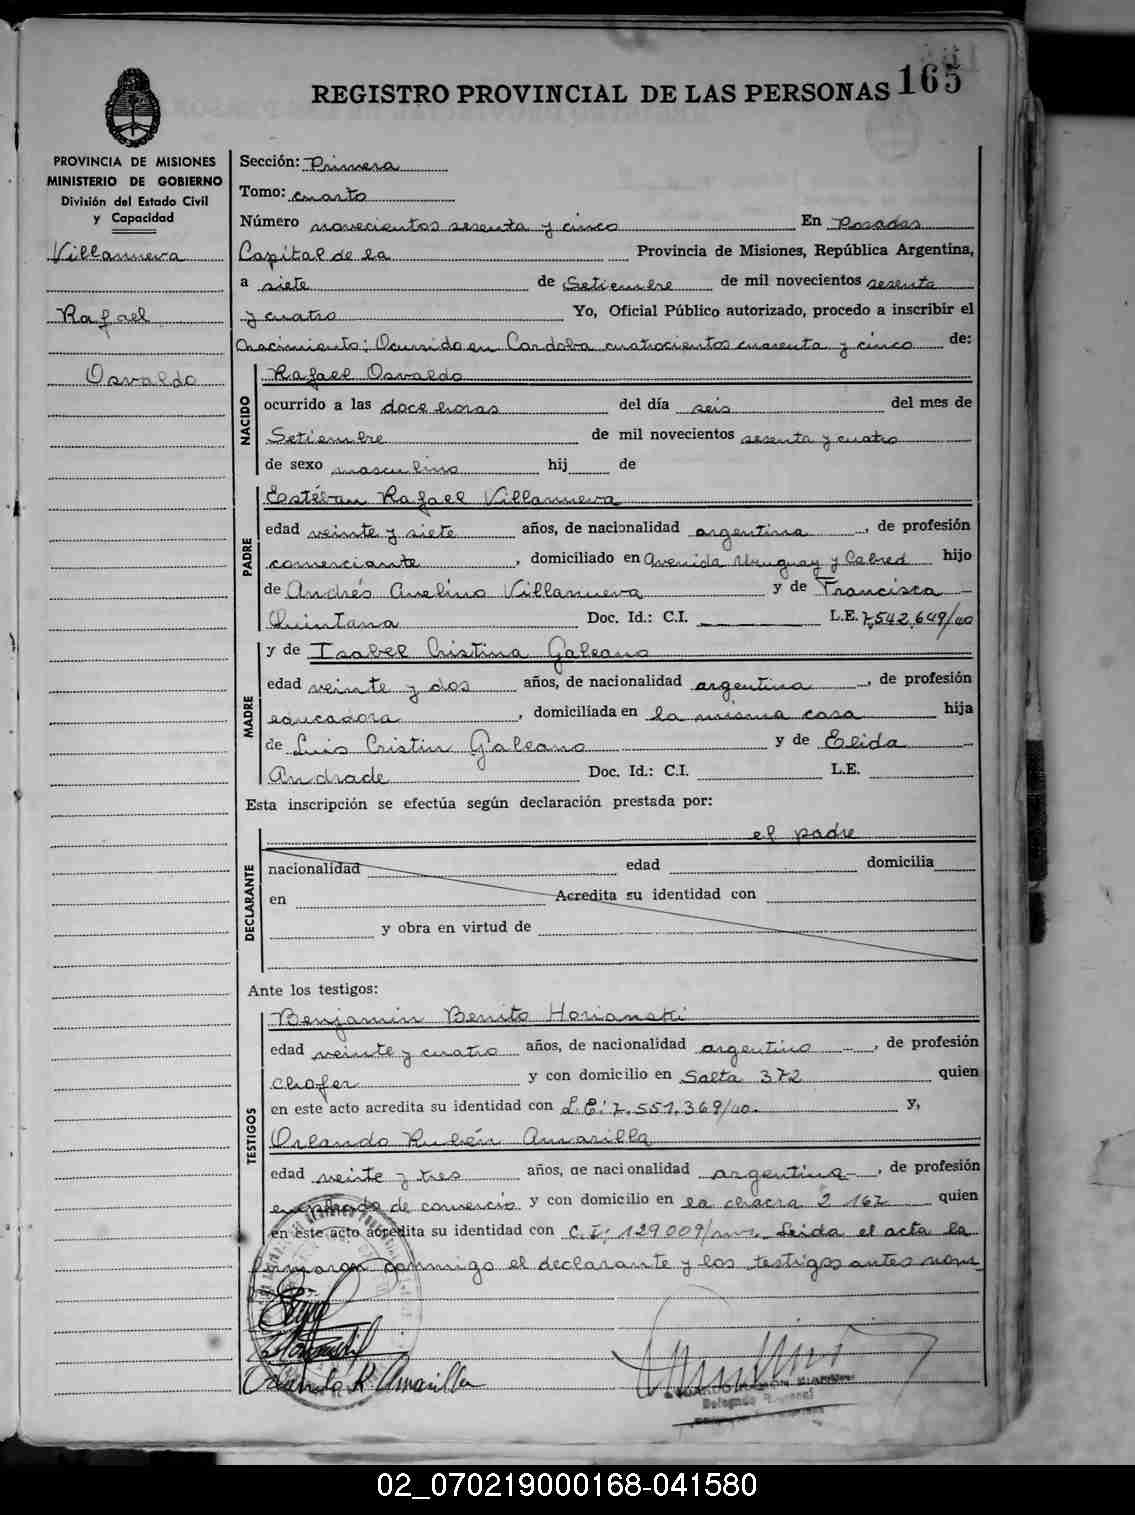 REGISTRO PROVINCIAL DE LAS PERSONAS 165
PROVINCIA DE MISIONES
MINISTERIO DE GOBIERNO
División del Estado Civil
y Capacidad
Villanueva
Rafael
Osvaldo
Sección: Primera
Tomo: cuarto
Número novecientos sesenta y cinco En Posadas
Capital de la Provincia de Misiones, República Argentina,
a siete de Setiembre de mil novecientos sesenta
y cuatro Yo, Oficial Público autorizado, procedo a inscribir el
nacimiento; Ocurrido en Cordoba cuatrocientos cuarenta y cinco de:
NACIDO
Rafael Osvaldo
ocurrido a las doce horas del día seis del mes de
Setiembre de mil novecientos sesenta y cuatro
de sexo masculino hij de
PADRE
Estéban Rafael Villanueva
edad veinte y siete años, de nacionalidad argentina, de profesión
comerciante, domiciliado en Avenida Uruguay y Cabred hijo
de Andrés Avelino Villanueva y de Francisca
Quintana Doc. Id.: C.I. L.E. 7,542,649/
MADRE
y de Isabel Cristina Galeano
edad veinte y dos años, de nacionalidad argentina, de profesión
educadora, domiciliada en la misma casa hija
de Luis Cristin Galeano y de Elida
Andrade Doc. Id.: C.I. L.E.
Esta inscripción se efectúa según declaración prestada por:
el padre
DECLARANTE
nacionalidad edad domicilia
en Acredita su identidad con
y obra en virtud de
Ante los testigos:
TESTIGOS
Benjamin Benito Horianski
edad veinte y cuatro años, de nacionalidad argentino, de profesión
chofer y con domicilio en Salta 372 quien
en este acto acredita su identidad con L.E: 7.551.369/ y,
Orlando Rubén Amarilla
edad veinte y tres años, de nacionalidad argentina, de profesión
empleado de comercio y con domicilio en la chacra 2 167 quien
en este acto acredita su identidad con C.I; 129009/ Leida el acta la
firmaron conmigo el declarante y los testigos antes nom
Orlando R Amarilla
Delegado
02_070219000168-041580